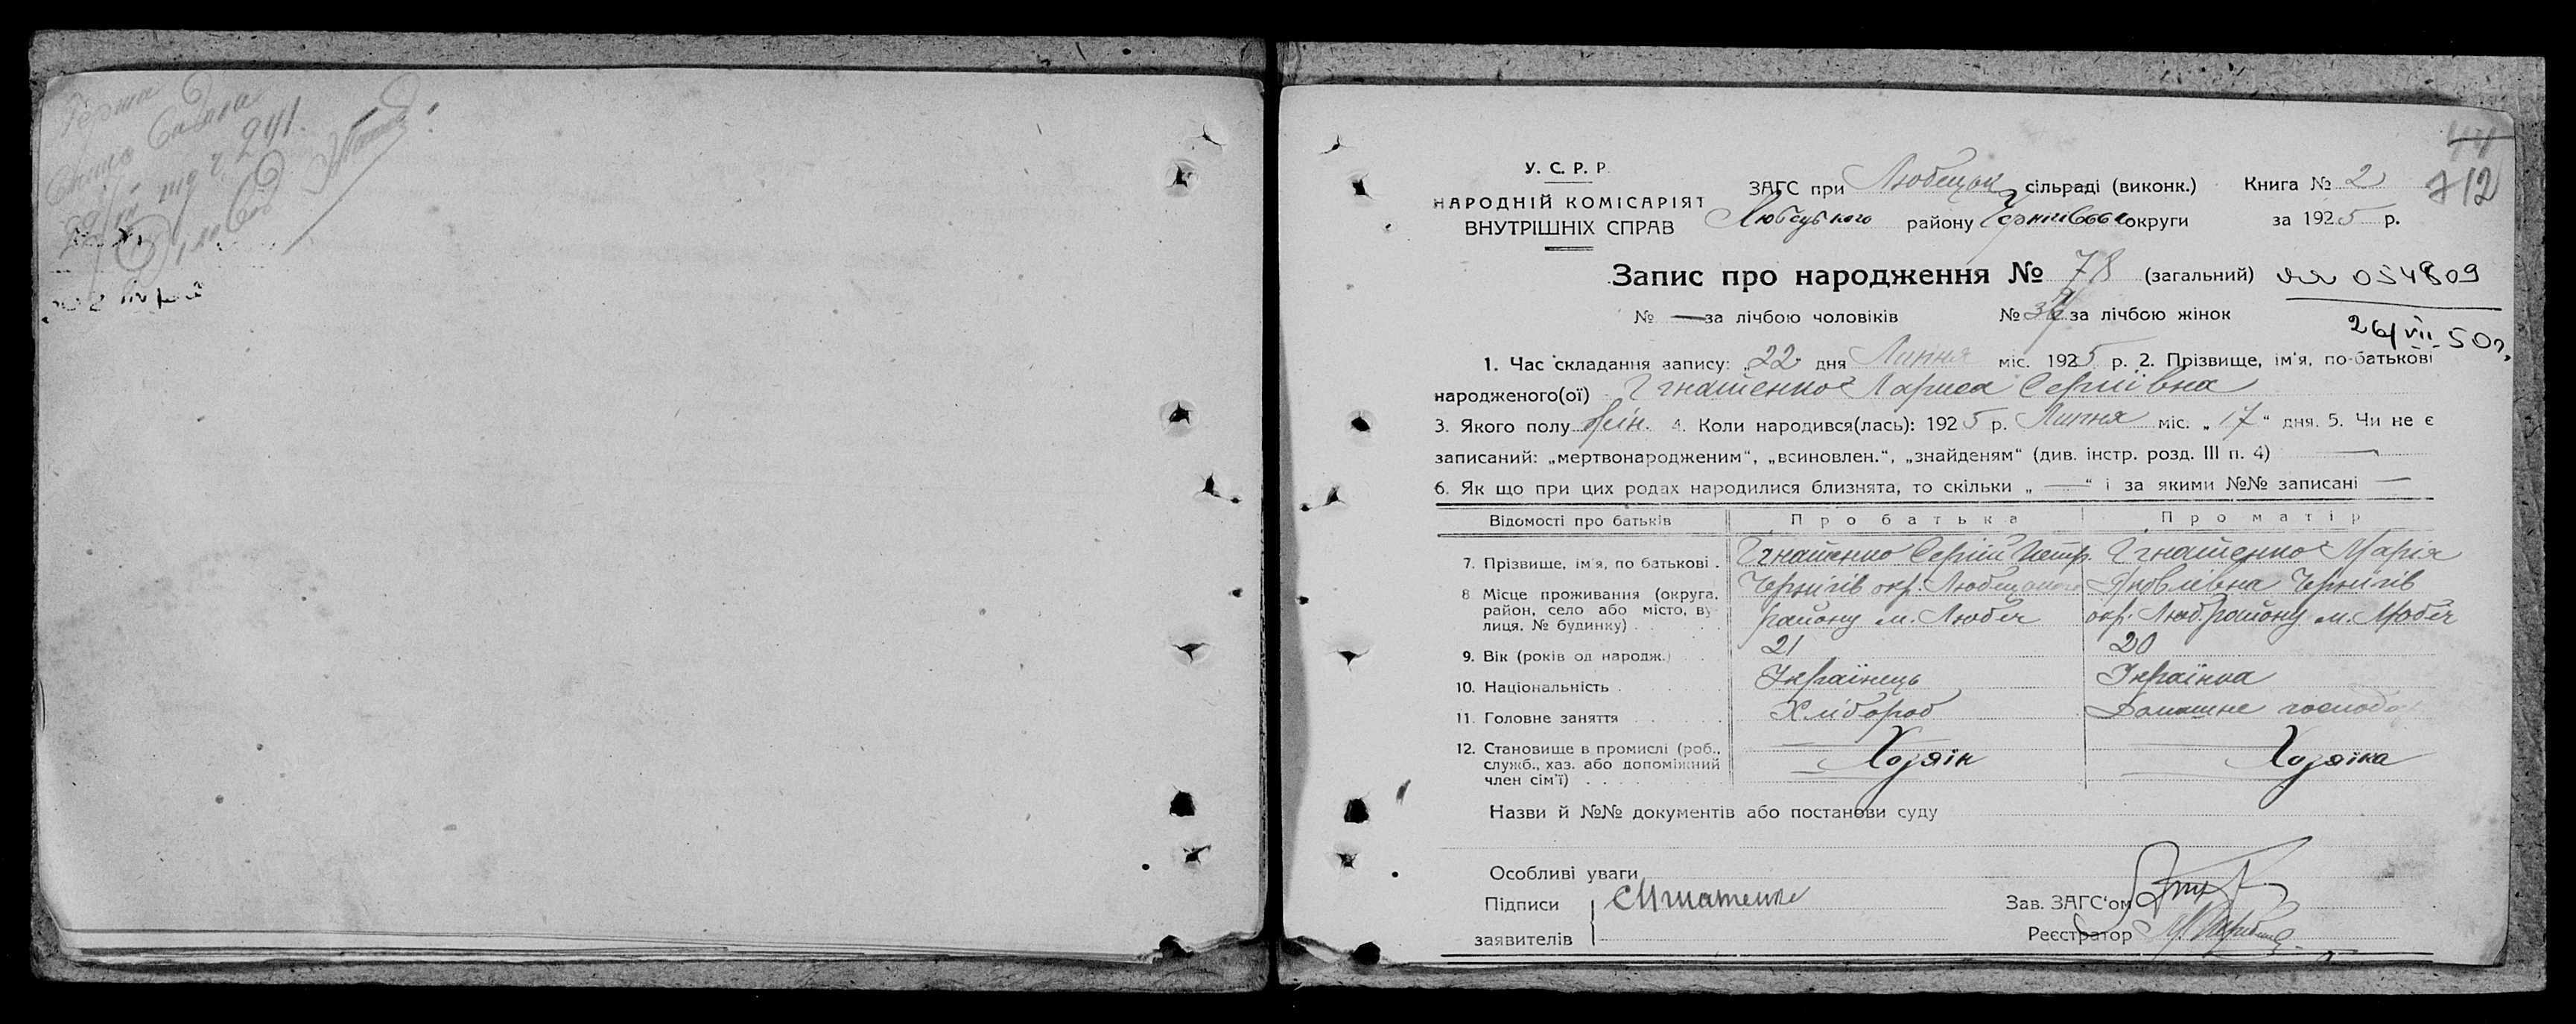 У. С. Р. Р.
НАРОДНІЙ КОМІСАРІЯТ
ВНУТРІШНІХ СПРАВ
ЗАГС при Любецьк сільраді (виконк.) Книга № 2
712
Любецького району Чернігівськ округи за 1925 р.
Запис про народження № 78 (загальний) 054809
№ — за лічбою чоловіків № за лічбою жінок
26/VII-50р.
1. Час складання запису: „22 дня Липня міс. 1925 р. 2. Прізвище, ім'я, по-батькові
народженого(ої) Ігнатенко Лариса Сергіївна
3. Якого полу жін. 4. Коли народився(лась): 1925 р. Липня міс. „17" дня. 5. Чи не є
записаний: „мертвонародженим", „всиновлен.", „знайденям" (див. інстр. розд. III п. 4) —
6. Як що при цих родах народилися близнята, то скільки „—" і за якими №№ записані —
Відомості про батьків Про батька Про матір
7. Прізвище, ім'я, по батькові . Ігнатенко Сергій Петр. Ігнатенко Марія
8 Місце проживання (округа, район, село або місто, вулиця, № будинку) . Чернігів окр. Любецького Яковлівна Чернігів
району м. Любеч окр. Люб. району м. Любеч
9. Вік (років од народж.) 21 20
10. Національність . Українець Українка
11. Головне заняття Хлібороб Домашне господар
12. Становище в промислі (роб., служб., хаз. або допоміжний член сім'ї) . Хозяїн Хозяїка
Назви й №№ документів або постанови суду
Особливі уваги
Підписи СИгнатенко Зав. ЗАГС'ом
заявителів Реєстратор